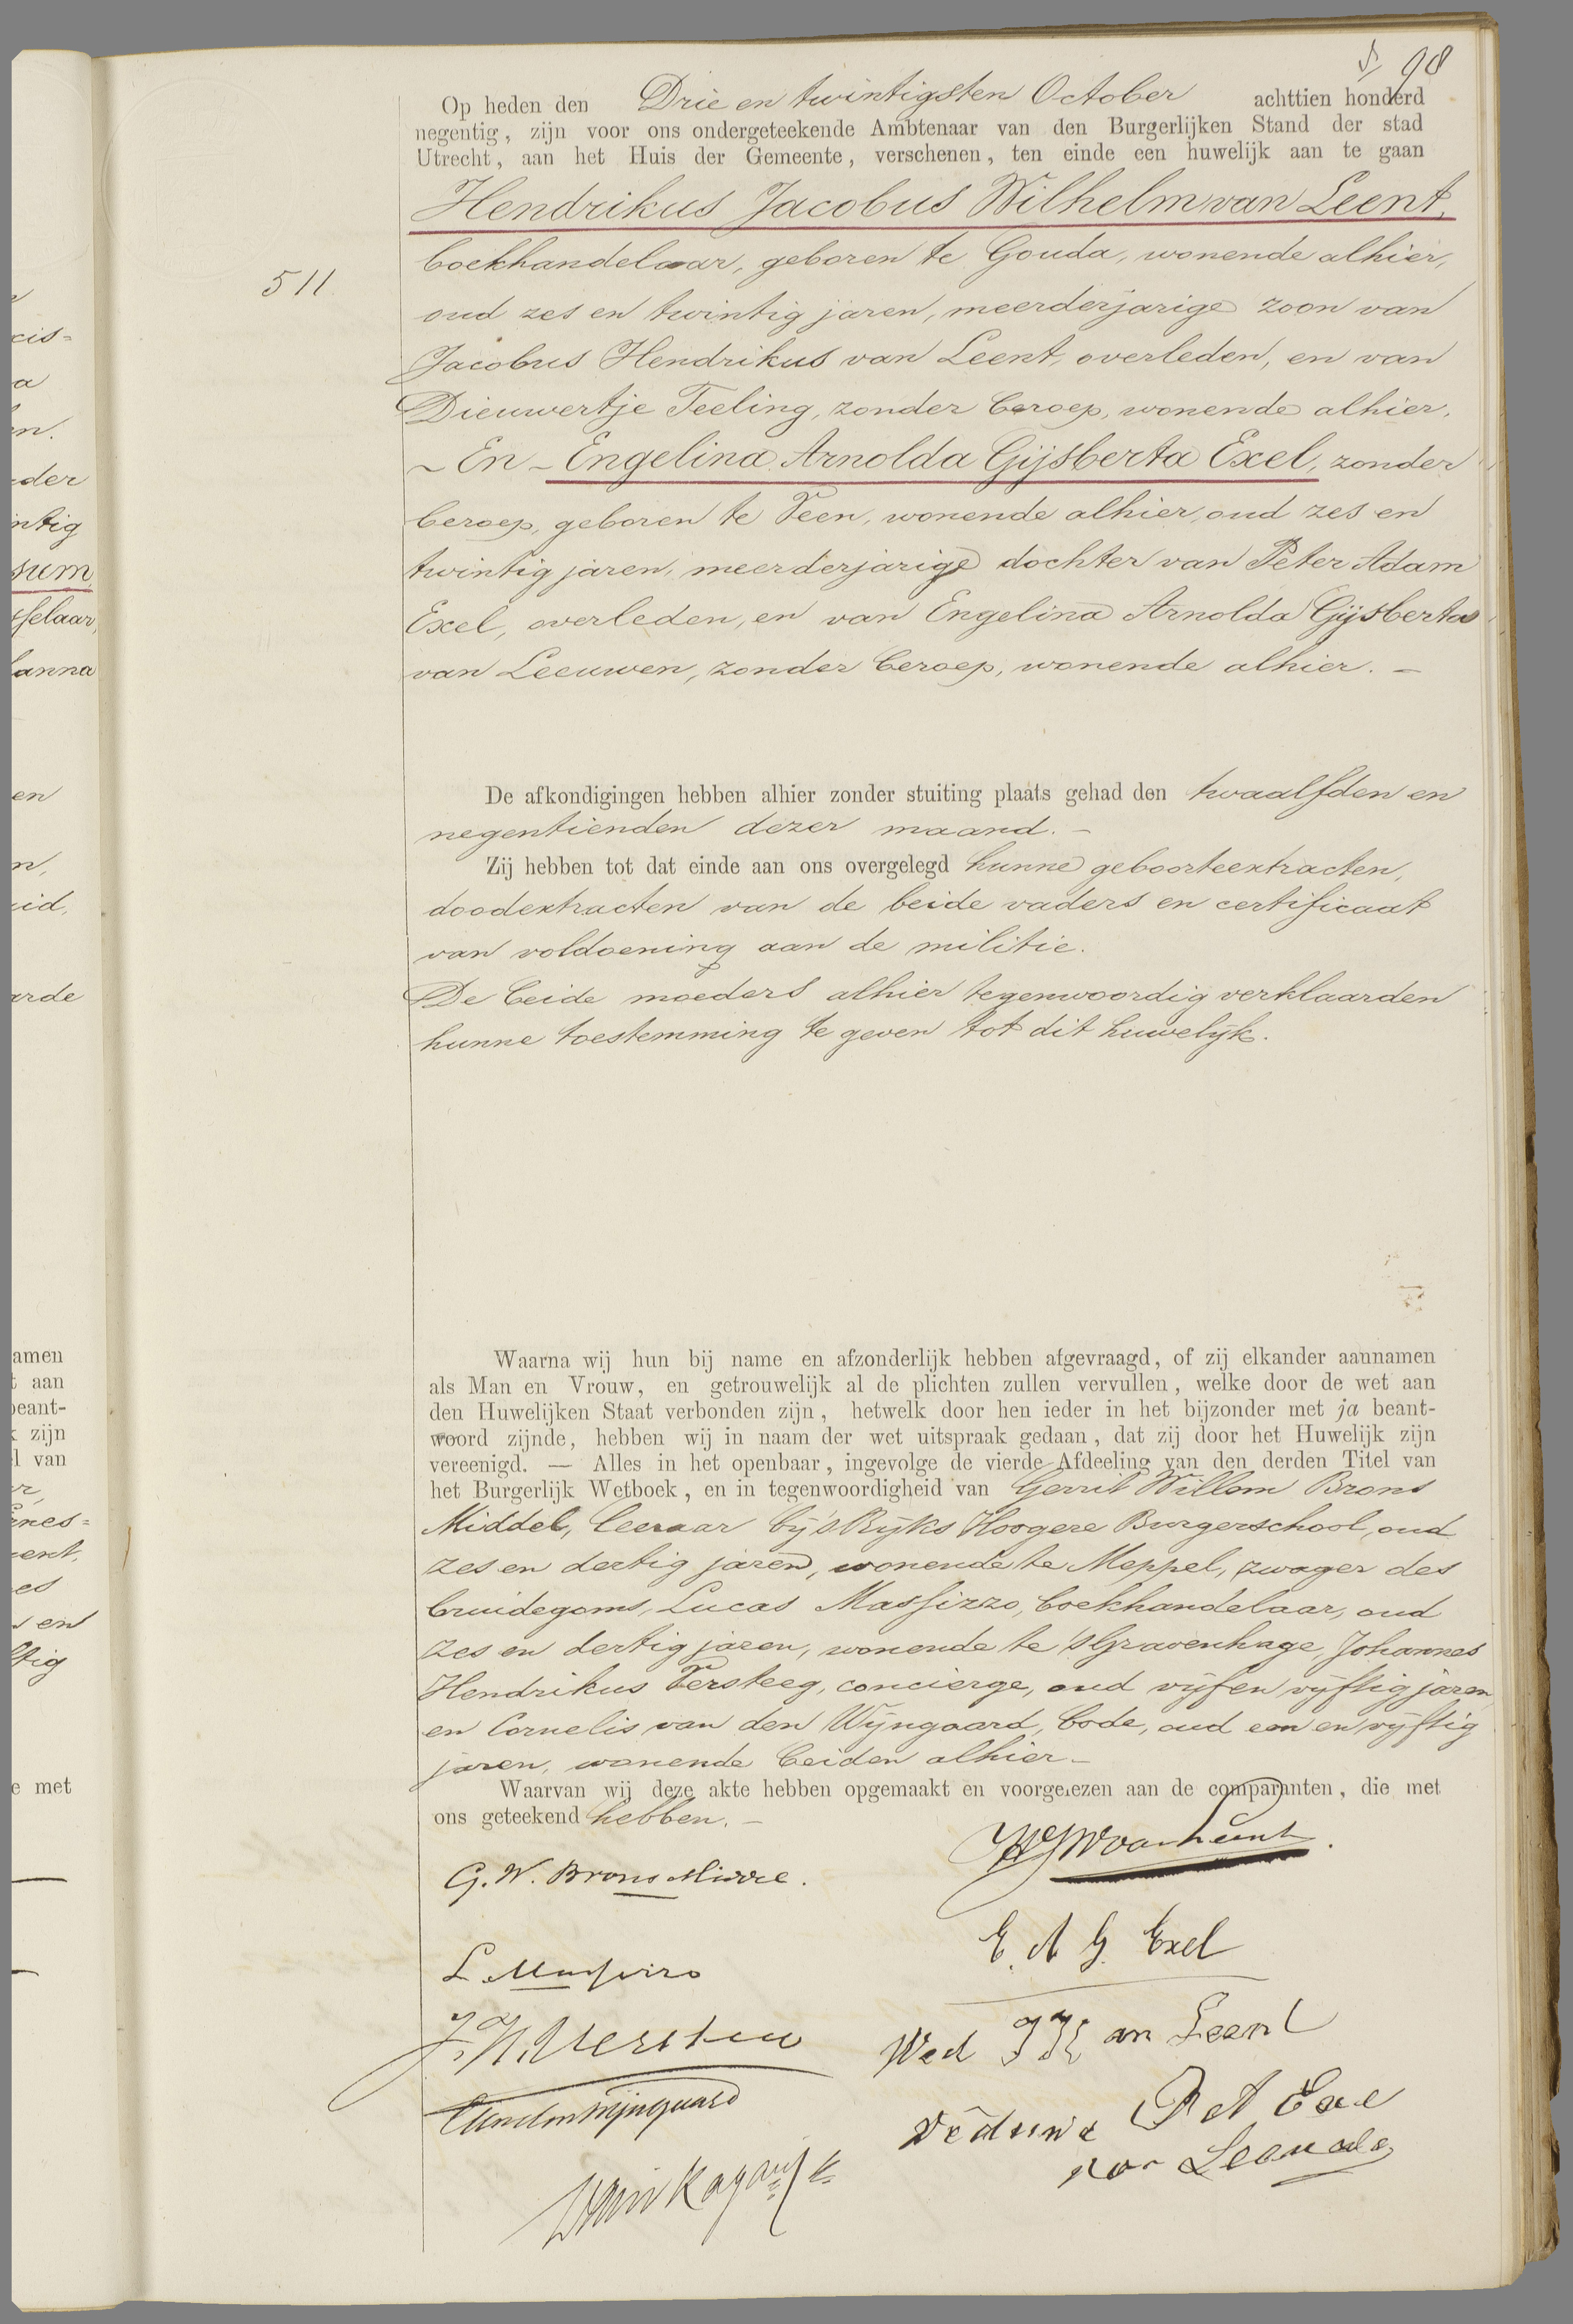 98
Op heden den Drie en twintigsten October achttien honderd
negentig, zijn voor ons ondergeteekende Ambtenaar van den Burgerlijken Stand der stad
Utrecht, aan het Huis der Gemeente, verschenen, ten einde een huwelijk aan te gaan
Hendrikus Jacobus Wilhelm van Leent,
511
boekhandelaar, geboren te Gouda, wonende alhier,
oud zes en twintig jaren, meerderjarige zoon van
Jacobus Hendrikus van Leent, overleden, en van
Dieuwertje Teeling, zonder beroep, wonende alhier,
- En - Engelina Arnolda Gijsberta Exel, zonder
beroep, geboren te Veen, wonende alhier, oud zes en
twintig jaren, meerderjarige dochter van Peter Adam
Exel, overleden, en van Engelina Arnolda Gijsberta
van Leeuwen, zonder beroep, wonende alhier. -
De afkondigingen hebben alhier zonder stuiting plaats gehad den twaalfden en
negentienden dezer maand. -
Zij hebben tot dat einde aan ons overgelegd hunne geboorteextracten,
doodextracten van de beide vaders en certificaat
van voldoening aan de militie.
De beide moeders alhier tegenwoordig verklaarden
hunne toestemming te geven tot dit huwelijk.
Waarna wij hun bij name en afzonderlijk hebben afgevraagd, of zij elkander aannamen
als Man en Vrouw, en getrouwelijk al de plichten zullen vervullen, welke door de wet aan
den Huwelijken Staat verbonden zijn, hetwelk door hen ieder in het bijzonder met ja beant-
woord zijnde, hebben wij in naam der wet uitspraak gedaan, dat zij door het Huwelijk zijn
vereenigd. — Alles in het openbaar, ingevolge de vierde Afdeeling van den derden Titel van
het Burgerlijk Wetboek, en in tegenwoordigheid van Gerrit Willem Brons
Middel, leeraar bij 's Rijks Hoogere Burgerschool, oud
zes en dertig jaren, wonende te Meppel, zwager des
bruidegoms, Lucas Massizzo, boekhandelaar, oud
zes en dertig jaren, wonende te 's Gravenhage, Johannes
Hendrikus Versteeg, concierge, oud vijf en vijftig jaren,
en Cornelis van den Wijngaard, bode, oud een en vijftig
jaren, wonende beiden alhier -
Waarvan wij deze akte hebben opgemaakt en voorgelezen aan de comparanten, die met
ons geteekend hebben. -
HJW van Leent
G. W. Brons Middel.
E. A G. Exel
L. Massizzo
J. H. Versteeg
Wed J H van Leent
C van den Wijngaard
Weduwe P A Exel
van Leeuwen